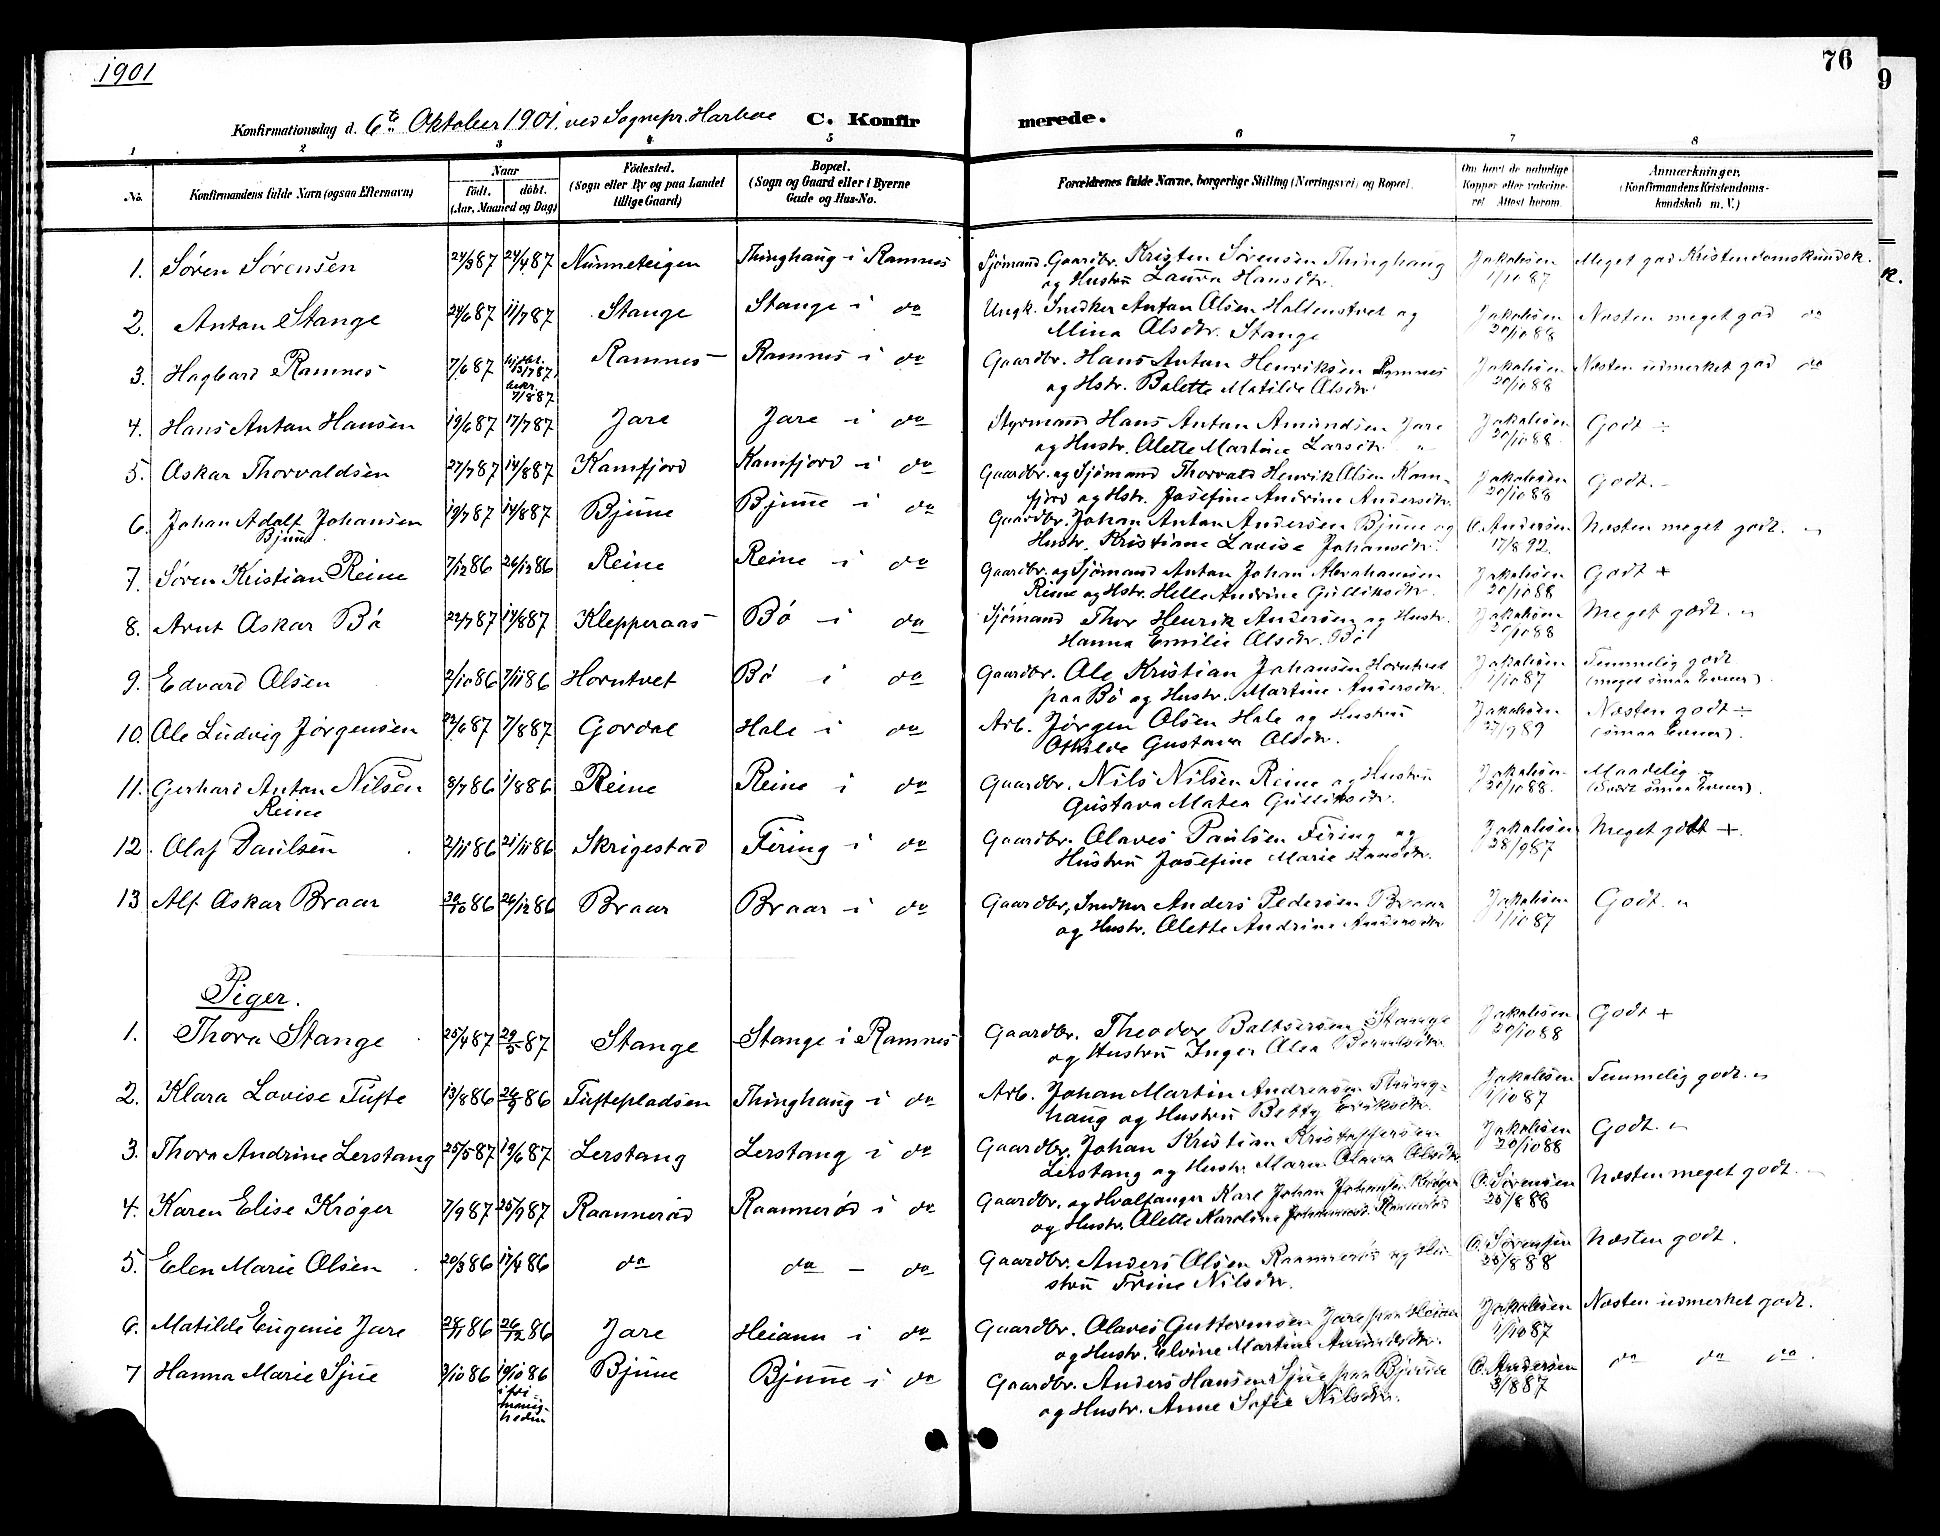 1901
76
9
Konfirmationsdag d. 6te Oktober 1901 ved Sognepr. Harboe C. Konfirmerede.
1 2 3 4 5 6 7 8
No. Konfirmandens fulde Navn (ogsaa Efternavn) Naar født. døbt. (Aar, Maaned og Dag) Fødested. (Sogn eller By og paa Landet tillige Gaard) Bopæl. (Sogn og Gaard eller i Byerne Gade og Hus-No. Forældrenes fulde Navne, borgerlige Stilling (Næringsvei) og Bopæl. Om havt de naturlige Kopper eller vaccineret Attest herom. Anmærkninger. (Konfirmandens Kristendomskundskab m. V.)
1. Søren Sørensen 24/3 87 24/4 87 Nunneteigen Thinghaug i Ramnes Sjømand. Gaardbr. Kristen Sørensen Thinghaug Jakobsen Meget god Kristendomskundsk.
og Hustru Laura Hansdtr. 1/10 87
2. Anton Stange 24/6 87 11/7 87 Stange Stange i do Ungk. Snedker Anton Olsen Holtenstvet og Jakobsen Næsten meget god do
Mina Olsdtr. Stange 20/10 88
3. Hagbard Ramnes 7/6 87 Ramnes Ramnes i do Gaardbr. Hans Anton Henriksen Ramnes Jakobsen Næsten udmerket god do
bekr. 7/8 87 og Hstr. Bolette Matilde Olsdtr. 20/10 88
4. Hans Anton Hansen 19/6 87 17/7 87 Jare Jare i do Styrmand Hans Anton Amundsen Jare Jakobsen Godt ÷
og Hustr. Olette Martine Larsdtr. " 20/10 88
5. Oskar Thorvaldsen 27/7 87 14/8 87 Kamfjord Kamfjord i do Gaardbr. og Sjømand Thorvald Henrik Olsen Kam- Jakobsen Godt. –
fjord og Hstr. Josefine Andrine Andersdtr. 20/10 88
6. Johan Adolf Johansen 19/7 87 14/8 87 Bjune Bjune i do Gaardbr. Johan Anton Andersen Bjune og O. Andersen Næsten meget godt. "
Bjune Hustr. Kristiane Lovise Johansdtr. 17/8 92.
7. Søren Kristian Reine 7/12 86 26/12 86 Reine Reine i do Gaardbr. og Sjømand Anton Johan Abrahamsen Jakobsen Godt +
Reine og Hstr. Helle Andrine Gulliksdtr. 20/10 88
8. Arnt Oskar Bø 22/7 87 14/8 87 Klepperaas Bø i do Sjømand Thor Henrik Andersen og Hustr. Jakobsen Meget godt. "
Hanna Emilie Olsdtr. Bø 20/10 88
9. Edvard Olsen 2/10 86 7/11 86 Horntvet Bø i do Gaardbr. Ole Kristian Johansen Horntvet Jakobsen Temmelig godt
paa Bø og Hustr. Martine Andersdtr. 1/10 87 (meget smaa Evner).
10. Ole Ludvig Jørgensen 22/6 87 7/8 87 Gordal Hole i do Arb. Jørgen Olsen Hole og Hustru Jakobsen Næsten godt ÷
Othilde Gustava Olsdtr. 27/9 89 (smaa Evner).
11. Gerhard Anton Nilsen 8/7 86 1/8 86 Reine Reine i do Gaardbr. Nils Nilsen Reine og Hustru Jakobsen Maadelig
Reine Gustava Matea Gulliksdtr. 20/10 88. (svært smaa Evner).
12. Olaf Paulsen 2/11 86 21/11 86 Skrigestad Firing i do Gaardbr. Olaves Paulsen Firing og Jakobsen Meget godt +.
Hustru Josefine Marie Hansdtr. 28/9 87
13 Alf Oskar Braar 30/10 86 26/12 86 Braar Braar i do Gaardbr, Snedker Anders Pedersen Braar Jakobsen Godt. "
og Hustr. Olette Andrine Andersdtr 1/10 87
Piger.
1. Thora Stange 25/4 87 29/5 87 Stange Stange i Ramnes Gaardbr. Theodor Baltsersen Stange Jakobsen Godt +
og Hustru Inger Olea 20/10 88
2. Klara Lovise Tufte 13/8 86 26/9 86 Tuftepladsen Thinghaug i do Arb. Johan Martin Andreasen Thing- Jakobsen Temmelig godt. "
haug og Hustru Betty Eriksdtr. 1/10 87
3. Thora Andrine Lerstang 25/5 87 19/6 87 Lerstang Lerstang i do Gaardbr. Johan Kristian Kristoffersen Jakobsen Godt. "
Lerstang og Hustr. Maren Olava Olsdtr 20/10 88
4. Karen Elise Krøger 7/9 87 25/9 87 Raannerød Raannerød i do Gaardbr. og Hvalfanger Karl Johan Johansen Krøger O. Sørensen Næsten meget godt.
og Hustr. Olette Karoline Johannesd. Raannerød 25/8 88
5. Elen Marie Olsen 20/3 86 17/4 86 do do – do Gaardbr. Anders Olsen Raannerød og Hu- O. Sørensen Næsten godt.
stru Trine Nilsdtr. 25/8 88
6. Matilde Eugenie Jare 28/11 86 26/12 86 Jare Heiann i do Gaardbr. Olaves Guttormsen Jare paa Heian Jakobsen Næsten udmerket godt.
og Hustr. Elvine Martine Amundsdtr. 1/10 87
7 Hanna Marie Sjue 3/10 86 19/10 86 Bjune Bjune i do Gaardbr. Anders Hansen Sjue paa Bjune O. Andersen do do do.
i fri- og Hustr. Anne Sofie Nilsdtr. 3/8 87
menig-
heden